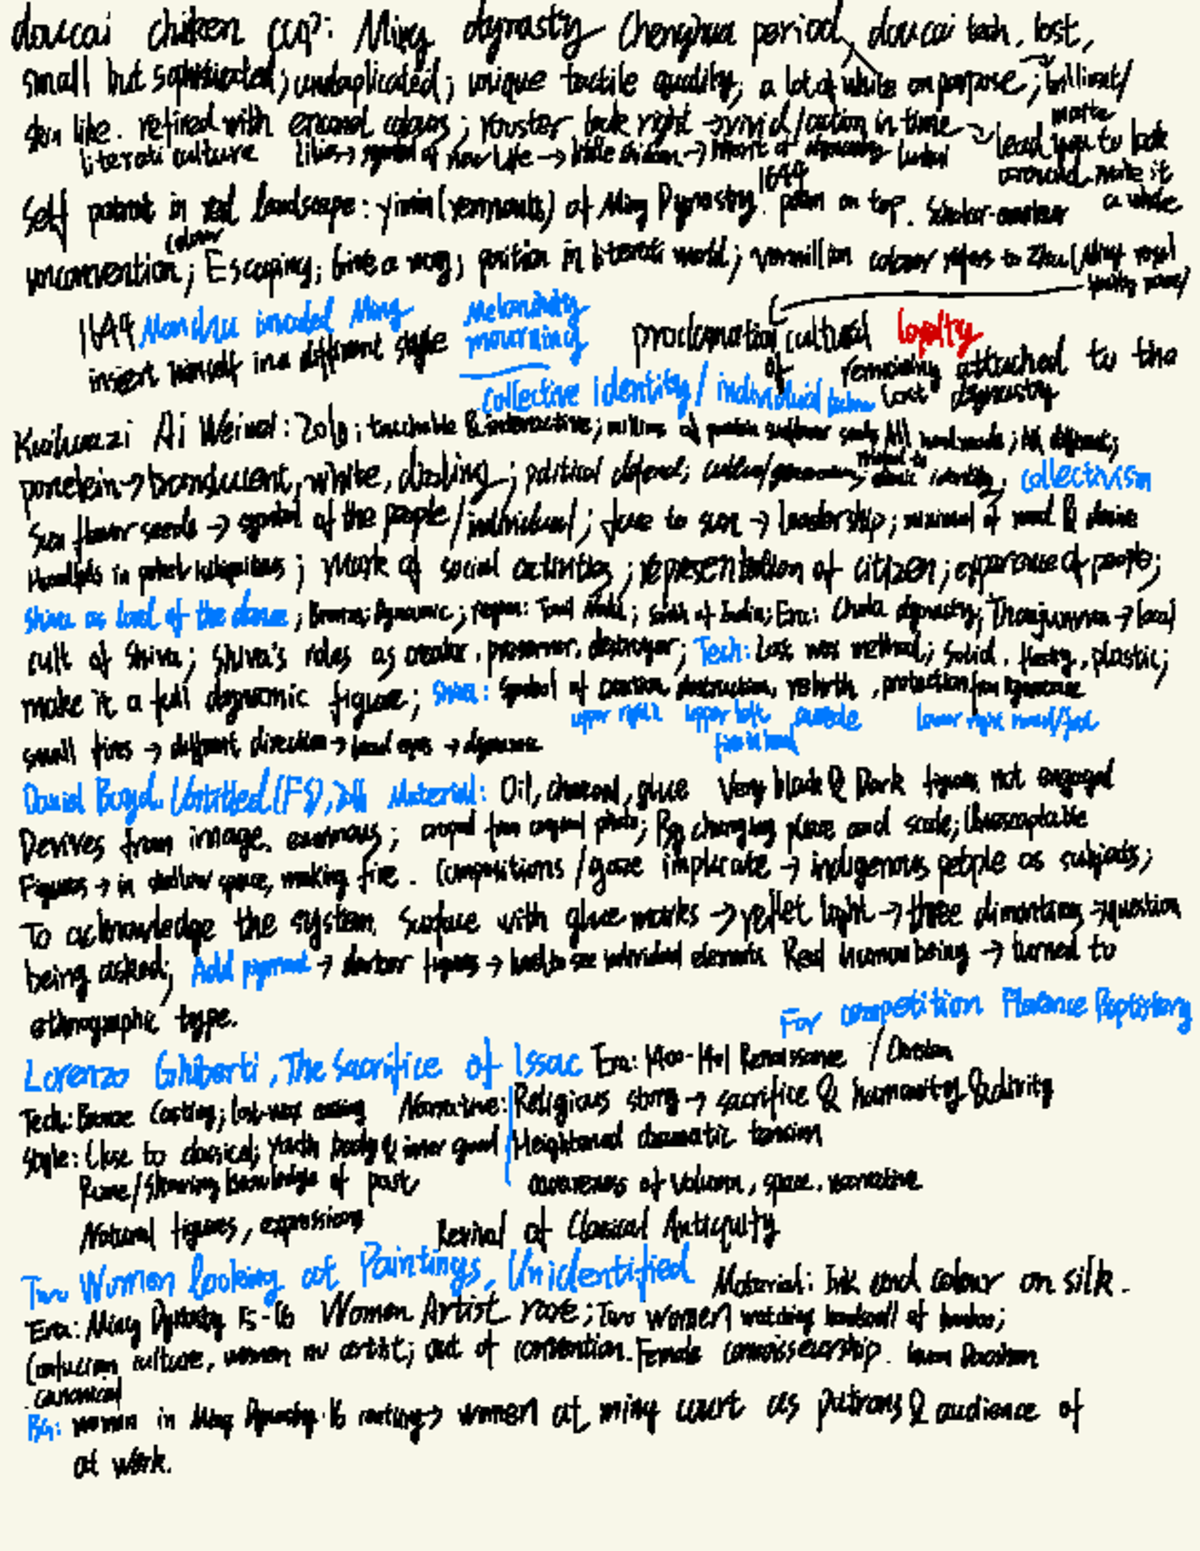 doucai chicken cup: Ming dynasty Chenghua period, doucai tech, lost,
small but sophisticated; unduplicated; unique tactile quality; a lot of white on purpose; brilliant/
matte
skin like. refined with enamel colours; rooster look right → vivid/action in time → lead you to look
literati culture Lilies → symbol of new life → little chicken → around. make it
a whole
Self portrait in red landscape: yimin (remnants) of Ming Dynasty. 1644 poem on top. Scholar-amateur
colour
unconvention; Escaping; Give a way; position in literati world; vermillion colour refers to Zhu (Ming royal
family name)
1644 Manchu invaded Ming Melancholy mourning proclamation of cultural loyalty
insert himself in a different style remaining attached to the
collective identity / individual lost dynasty
Kuihuazi Ai Weiwei: 2010; touchable & interactive; millions of sunflower seeds, All handmade; All different;
porcelain → translucent, white, ; political ; identity, collectivism
Sun flower seeds → symbol of the people/individual; face to sun → leadership; minimal of need & desire
in pocket ubiquitous; Mark of social activities; representation of citizen; experience of people;
Shiva as Lord of the dance; Bronze; Dynamic; region: Tamil Nadu; South of India; Era: Chola dynasty; Thanjavur → local
cult of Shiva; Shiva's roles as creator, preserver, destroyer; Tech: Lost wax method; Solid, , plastic;
make it a full dynamic figure; Shiva: Symbol of creation, destruction, rebirth, protection from ignorance
upper right upper left outside lower right hand/foot
fire in hand
small fires → different direction → → dynamic
Daniel Boyd. Untitled (FS), Material: Oil, charcoal, glue Very black & Dark figures not engaged
Derives from image. ; cropped from original photo; By changing place and scale;
Figures → in shallow space, making fire. Compositions / gaze implicate → indigenous people as subjects;
To acknowledge the system. Surface with glue marks → reflet light → three dimontions → question
being asked; Add pigment → darker figures → hard to see individual elements. Real human being → turned to
ethnographic type.
For competition Florence Baptistery
Lorenzo Ghiberti, The Sacrifice of Issac Era: 1400-1401 Renaissance / Christian
Tech: Bronze Casting; lost-wax casting Narrative: Religious story → sacrifice & humanity & divity
Style: Close to classical; youth body & inner good Heightened dramatic tension
Rome/Showing knowledge of past awareness of volume, space, narrative
Natural figures, expressions Revival of Classical Antiquity
Two Women Looking at Paintings, Unidentified Material: Ink and colour on silk.
Era: Ming Dynasty 15-16 Women Artist rose; Two women watching handscroll of bamboo;
Confucian culture, women no artist; out of convention. Female connoisseurship.
canonical
BG: women in Ming Dynasty 16 → women at ming court as patrons & audience of
at work.